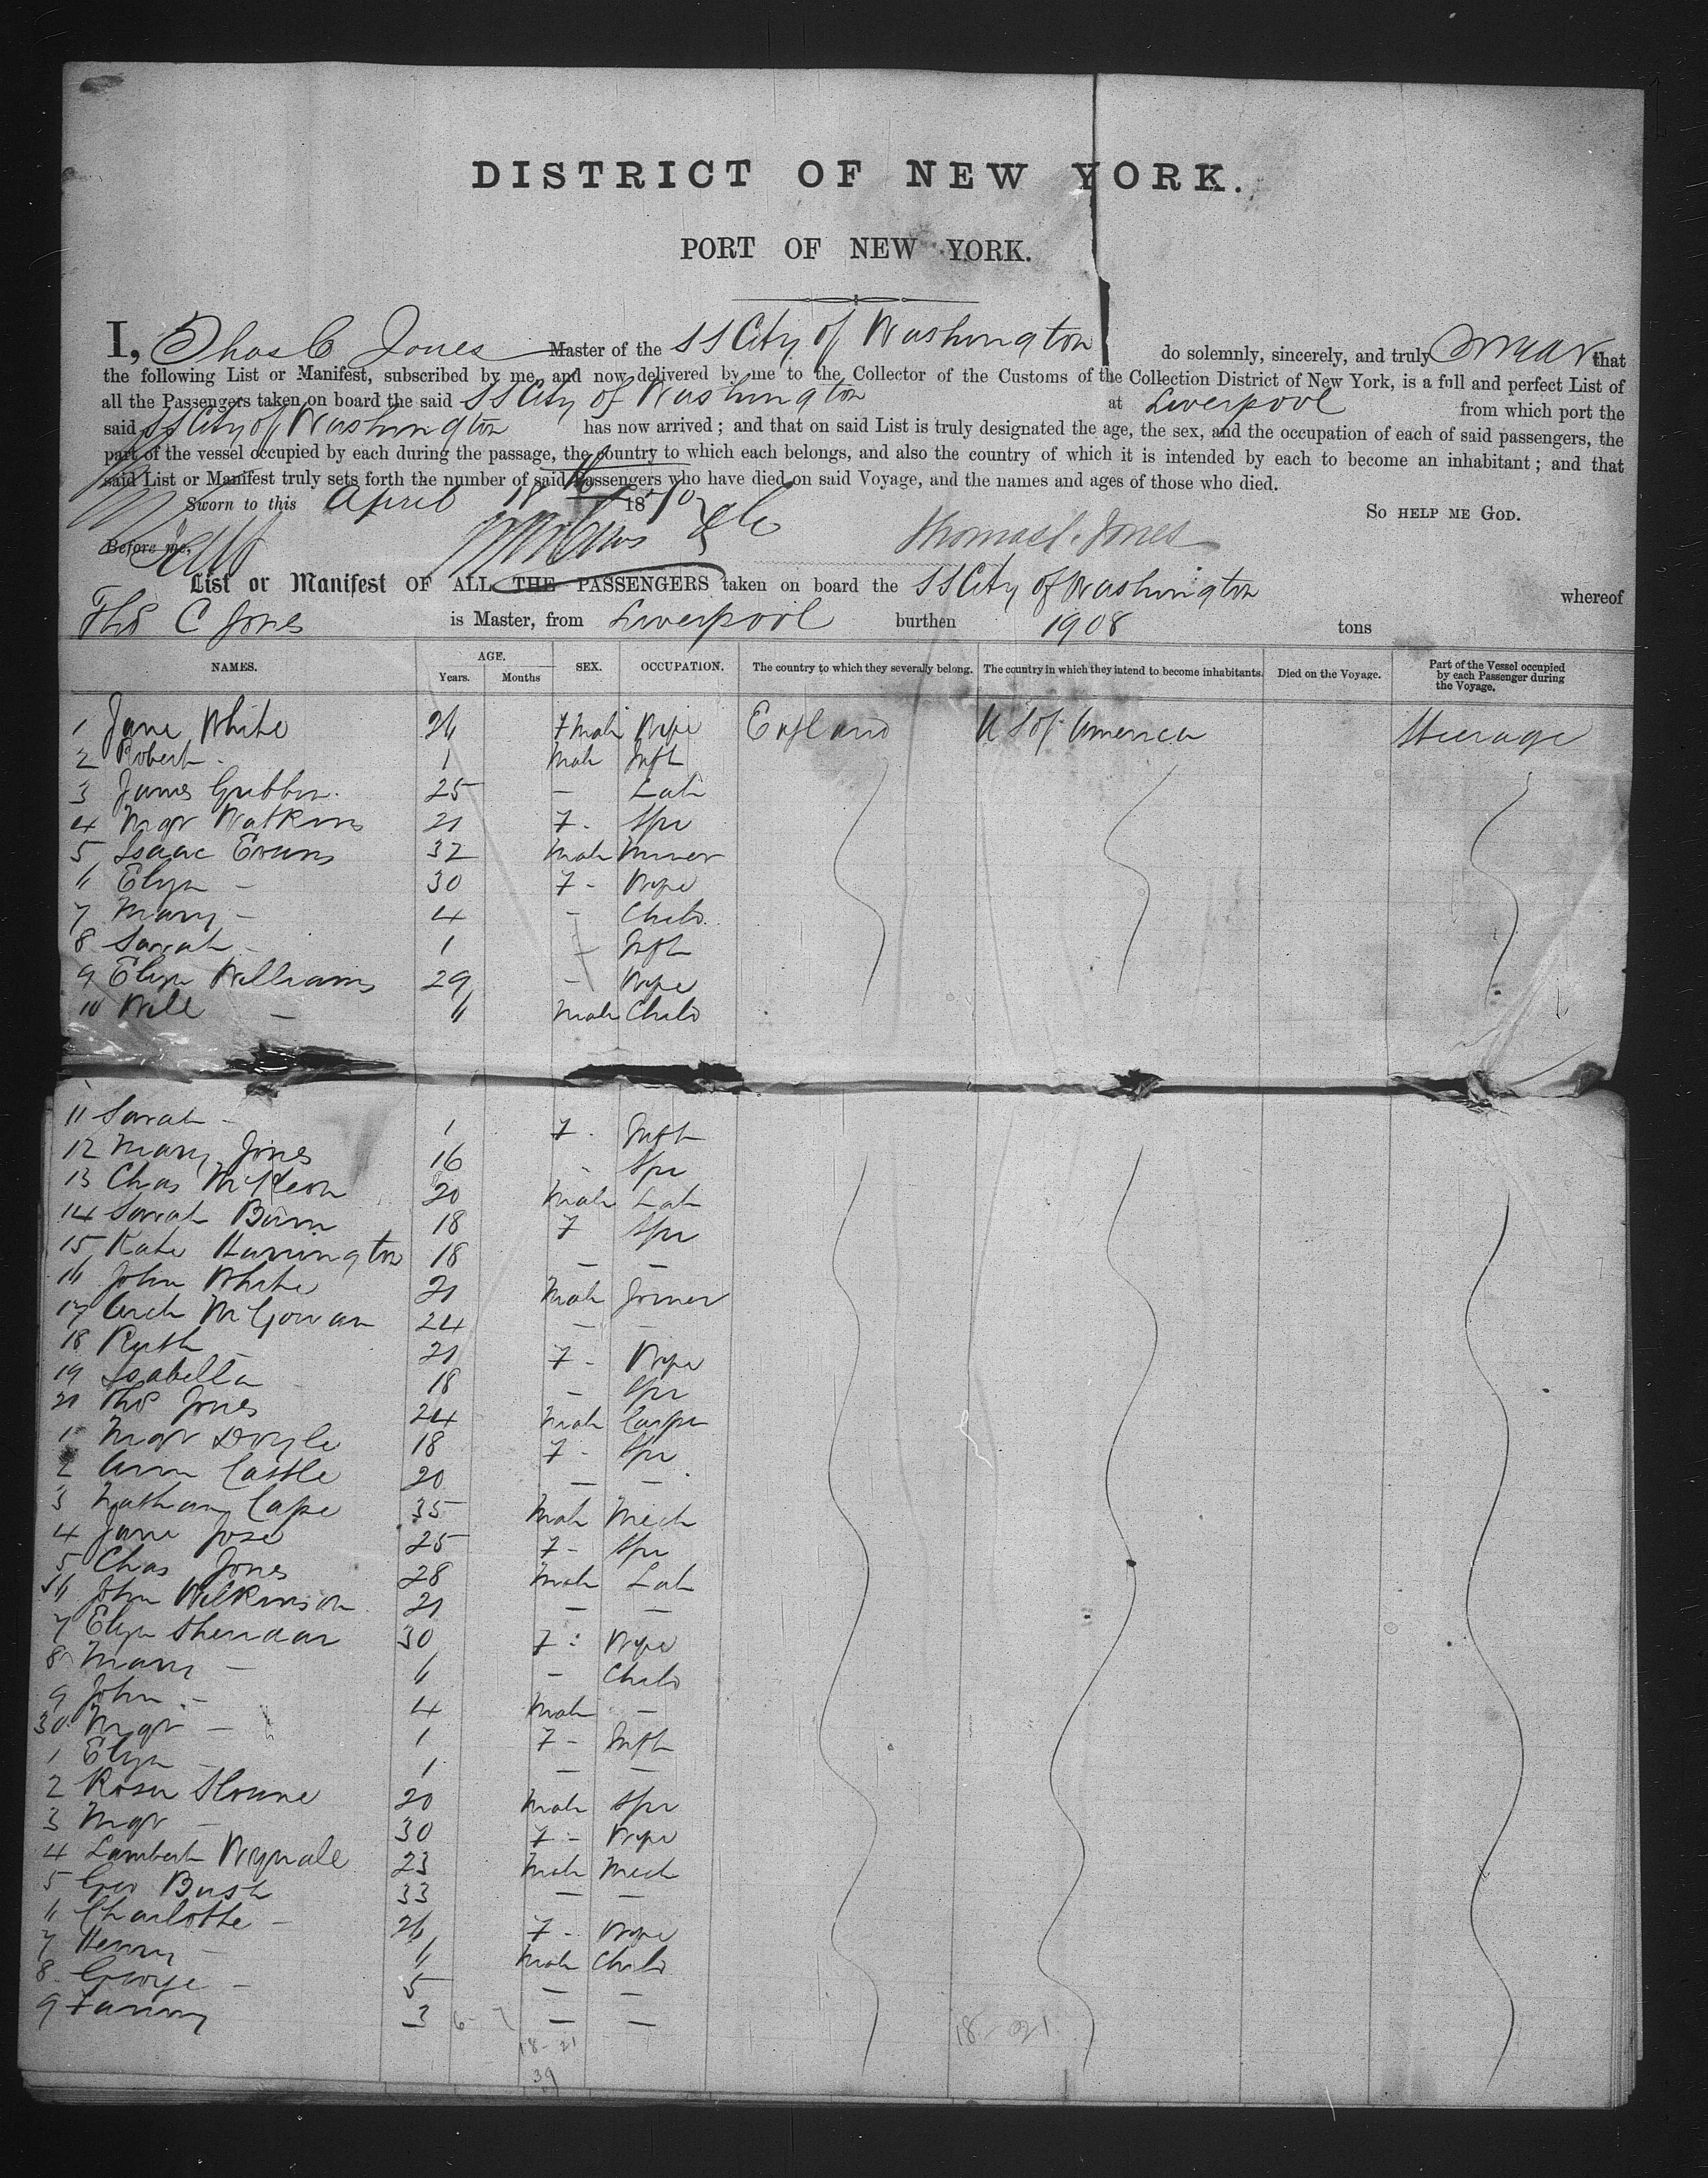 DISTRICT OF NEW YORK.
PORT OF NEW YORK.
I, Thos C Jones Master of the SS City of Washington do solemnly, sincerely, and truly swear that
the following List or Manifest, subscribed by me, and now delivered by me to the Collector of the Customs of the Collection District of New York, is a full and perfect List of
all the Passengers taken on board the said SS City of Washington at Liverpool from which port the
said SS City of Washington has now arrived; and that on said List is truly designated the age, the sex, and the occupation of each of said passengers, the
part of the vessel occupied by each during the passage, the country to which each belongs, and also the country of which it is intended by each to become an inhabitant; and that
said List or Manifest truly sets forth the number of said Passengers who have died on said Voyage, and the names and ages of those who died.
Sworn to this April 18th 1870
So help me God.
Before me,
Thomas C. Jones
List or Manifest OF ALL THE PASSENGERS taken on board the SS City of Washington whereof
Thos C Jones is Master, from Liverpool burthen 1908 tons
NAMES. AGE. Years. Months SEX. OCCUPATION. The country to which they severally belong. The country in which they intend to become inhabitants. Died on the Voyage. Part of the Vessel occupied by each Passenger during the Voyage.
1 Jane White 26 Fmale Wife England U S of America Steerage
2 Robert - 1 Male Inft
3 James Gribbin 25 - Lab
4 Mgt Watkins 21 F - Spr
5 Isaac Evans 32 Male Miner
6 Eliza - 30 F - Wife
7 Mary - 4 - Child
8 Sarah - 1 - Inft
9 Eliza Williams 29 - Wife
10 Will - 6 Male Child
11 Sarah - 1 F - Inft
12 Mary Jones 16 - Spr
13 Chas McKeon 20 Male Lab
14 Sarah Burn 18 F Spr
15 Kate Harrington 18 - -
16 John White 21 Male Joiner
17 Arch McGowan 24 - -
18 Ruth - 21 F - Wife
19 Isabella - 18 - Spr
20 Thos Jones 24 Male Carpr
1 Mgt Doyle 18 F - Spr
2 Ann Castle 20 - -
3 Nathan Cape 35 Male Mech
4 Jane Jose 25 F - Spr
5 Chas Jones 28 Male Lab
6 John Wilkinson 21 - -
7 Eliza Sheridan 30 F - Wife
8 Mary - 6 - Child
9 John - 4 Male -
30 Mgt - 1 F - Inft
1 Eliza - 1 - -
2 Rosa Sloane 20 Male Spr
3 Mgt - 30 F - Wife
4 Lambert 23 Male Mech
5 Geo Bush 33 - -
6 Charlotte - 26 F - Wife
7 Henry - 6 Male Child
8 George - 5 - -
9 Fanny 3 - -
18 - 21
18 - 21
39